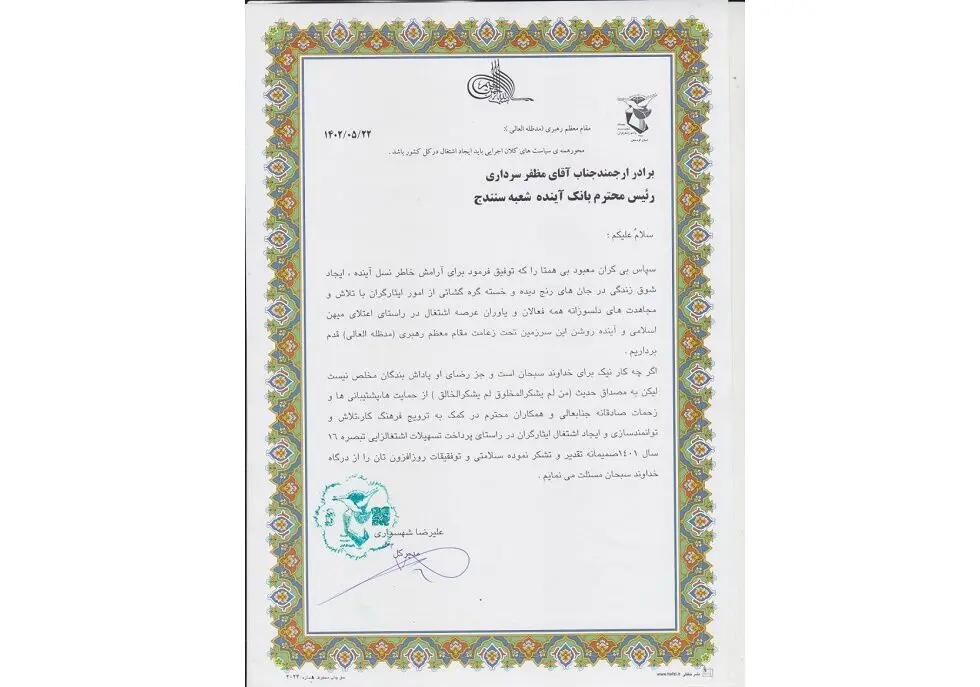 ۱۴۰۲/۰۵/۲۲
مقام معظم رهبری (مدظله العالی ):
محورهمه ی سیاست های کلان اجرایی باید ایجاد اشتغال درکل کشور باشد .
برادر ارجمندجناب آقای مظفر سرداری
رئیس محترم بانک آینده شعبه سنندج
سلامٌ علیکم ؛
سپاس بی کران معبود بی همتا را که توفیق فرمود برای آرامش خاطر نسل آینده ، ایجاد
شوق زندگی در جان های رنج دیده و خسته گره گشائی از امور ایثارگران با تلاش و
مجاهدت های دلسوزانه همه فعالان و یاوران عرصه اشتغال در راستای اعتلای میهن
اسلامی و آینده روشن این سرزمین تحت زعامت مقام معظم رهبری (مدظله العالی) قدم
برداریم .
اگر چه کار نیک برای خداوند سبحان است و جز رضای او پاداش بندگان مخلص نیست
لیکن به مصداق حدیث (من لم یشکرالمخلوق لم یشکرالخالق ) از حمایت ها،پشتیبانی ها و
زحمات صادقانه جنابعالی و همکاران محترم در کمک به ترویج فرهنگ کار،تلاش و
توانمندسازی و ایجاد اشتغال ایثارگران در راستای پرداخت تسهیلات اشتغالزایی تبصره ۱۶
سال ۱۴۰۱صمیمانه تقدیر و تشکر نموده سلامتی و توفیقات روزافزون تان را از درگاه
خداوند سبحان مسئلت می نمایم .
علیرضا شهسواری
مدیرکل
www.hafizi.ir